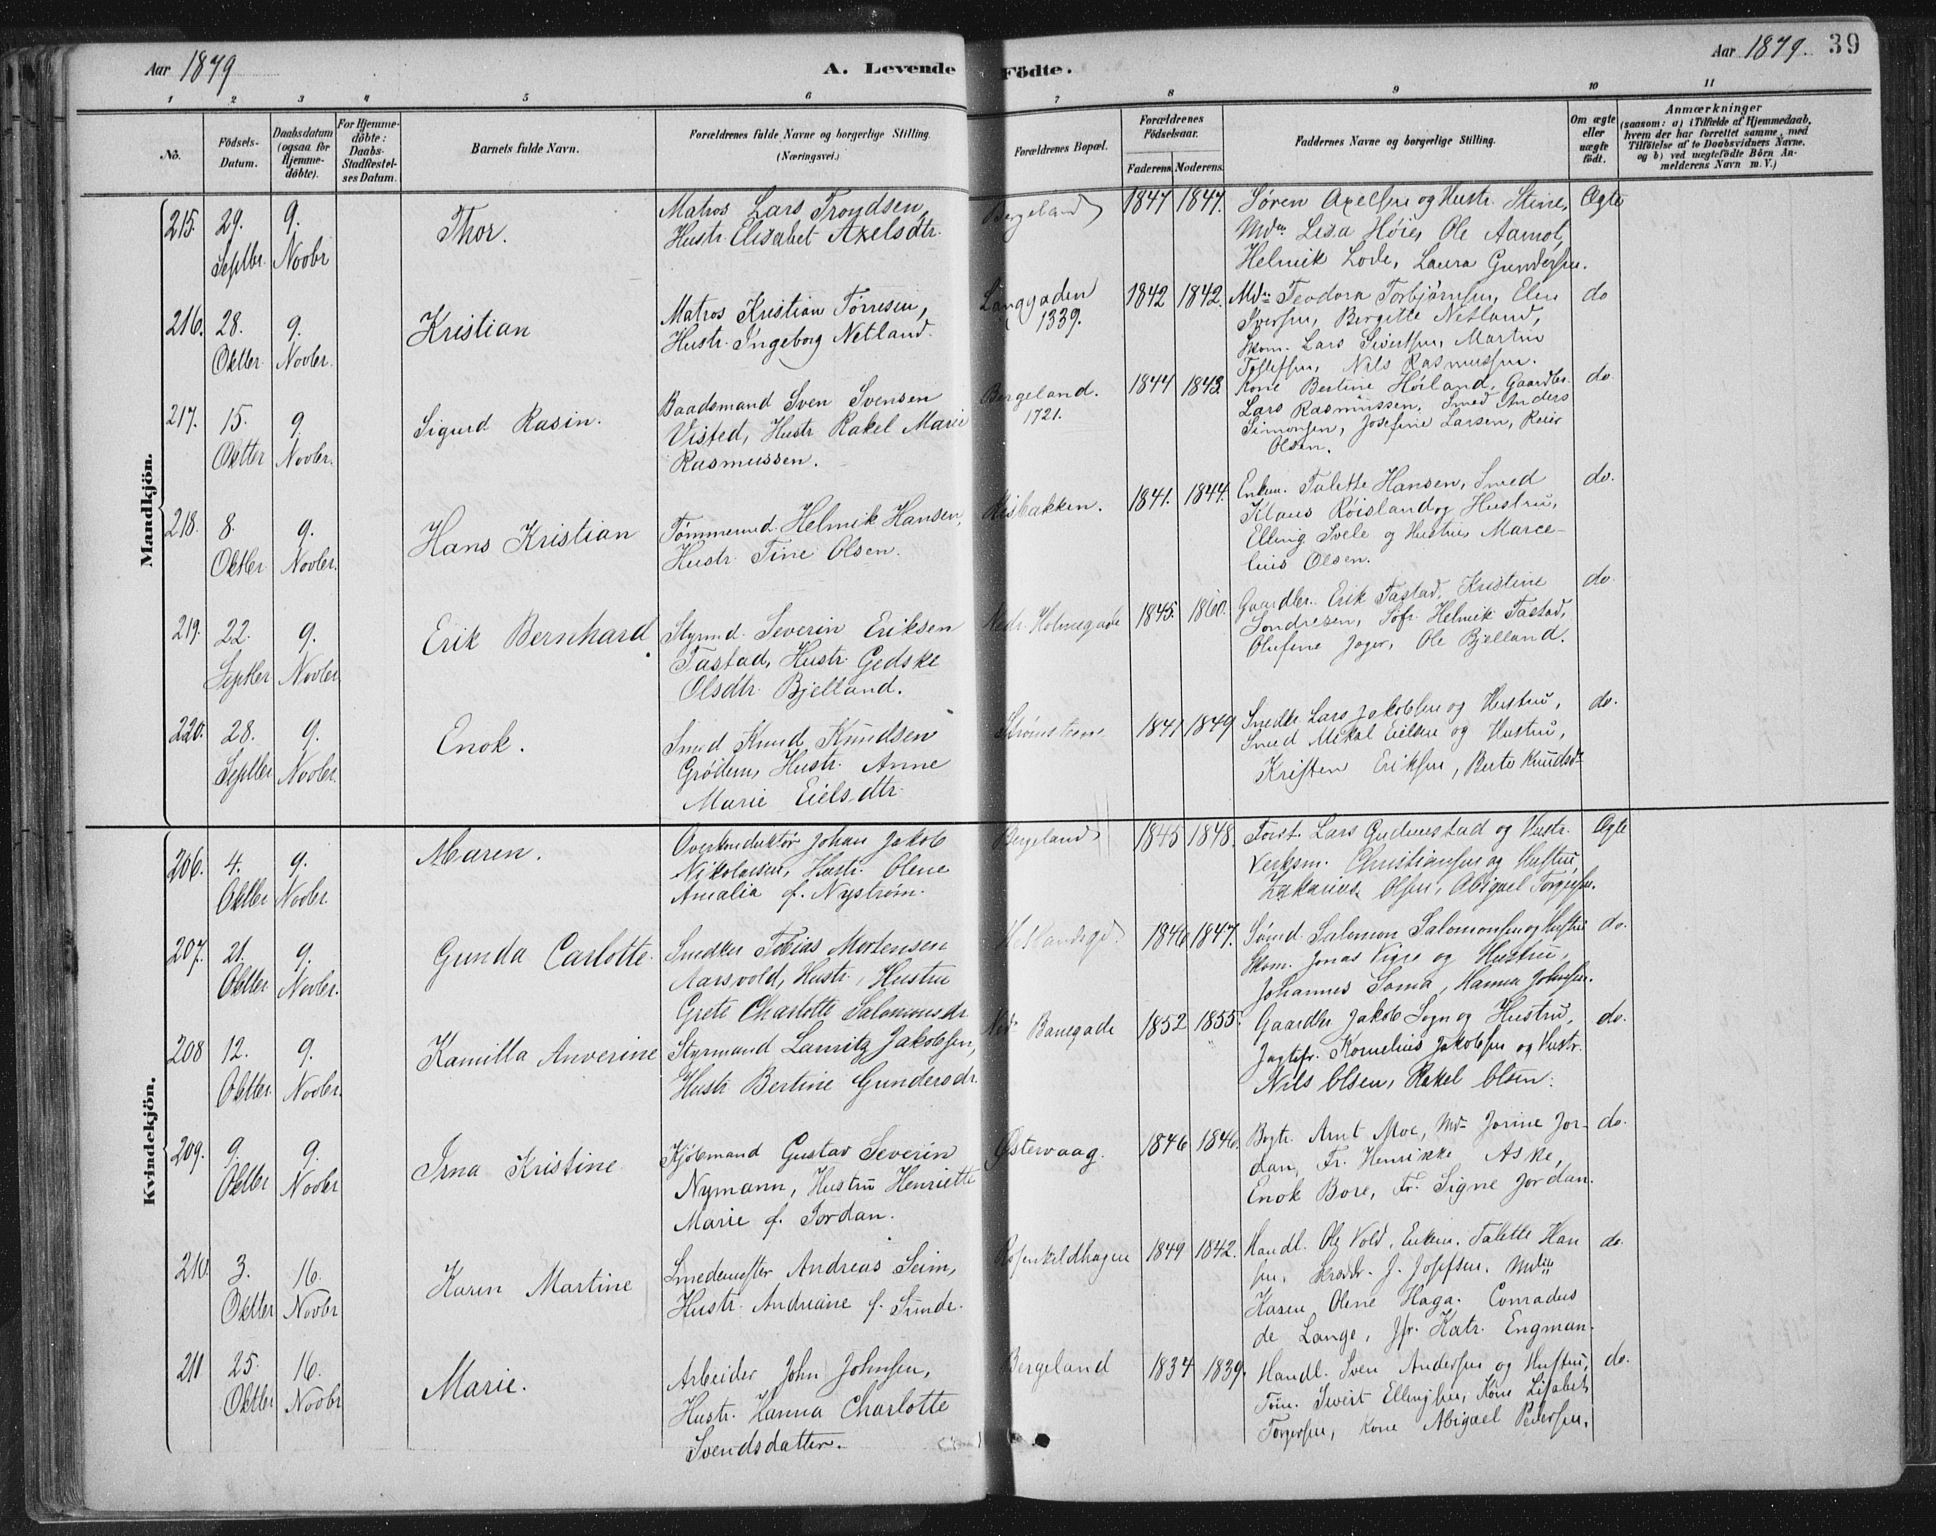 Aar 1879
A. Levende Födte.
Aar 1879. 39
1 2 3 4 5 6 7 8 9 10 11
No.
Födsels-Datum.
Daabsdatum (ogsaa for Hjemme-døbte).
For Hjemme-døbte: Daabs-Stadfæstel-ses Datum.
Barnets fulde Navn.
Forældrenes fulde Navne og borgerlige Stilling. (Næringsvei.)
Forældrenes Bopæl.
Forældrenes Födselsaar.
Faderens. Moderens.
Faddernes Navne og borgerlige Stilling.
Om ægte eller uægte födt.
Anmærkninger
(saasom: a) i Tilfælde af Hjemmedaab,
hvem der har forrettet samme, med
Tilføielse af to Daabsvidners Navne,
og b) ved uægtefödte Börn An-
melderens Navn m. V.)
Mandkjön.
215. 29. Septbr 9. Novbr
Thor.
Matros Lars Trondsen,
Hustr. Elisabet Axelsdtr.
Bergeland
1847 1847.
Søren Axelsen og Hustr. Stine,
Mdm Lisa Høie, Ole Aamot,
Helmik Lode, Laura Gundersen.
Ægte
216. 28. Oktbr 9. Novbr.
Kristian
Matros Kristian Tørresen,
Hustr. Ingeborg Netland.
Langgaden
1339.
1842 1842.
Mdm Teodora Torbjørnsen, Elen
Iversen, Bergitte Netland,
Skom. Lars Sivertsen, Martin
Tollefsen, Nils Rasmussen.
do
217. 15. Oktbr 9. Novbr.
Sigurd Rasin.
Baadsmand Sven Svensen
Visted, Hustr. Rakel Marie
Rasmussen.
Bergeland.
1721.
1844 1843.
Kone Bertine Høiland, Gaardbr.
Lars Rasmussen, Smed Anders
Simonsen, Josefine Larsen, Reier
Olsen.
do.
218. 8. Oktbr 9. Novbr.
Hans Kristian
Tømmermd. Helmik Hansen,
Hustr. Tine Olsen.
Risbakken.
1841. 1844.
Enkem. Talette Hansen, Smed
Klaus Røisland og Hustru,
Elling Svele og Hustru, Marce-
lius Olsen.
do.
219. 22. Septbr 9. Novbr
Erik Bernhard.
Styrmd. Severin Eriksen
Tastad, Hustr. Gedske
Olsdtr. Bjelland.
Nedr. Holmegade
1845. 1860.
Gaardbr. Erik Tastad, Kristine
Sondresen, Sofr. Helmik Tastad,
Olufine Jager, Ole Bjelland.
do
220. 28. Septbr 9. Novbr.
Enok.
Smed Knud Knudsen
Grødem, Hustr. Anne
Marie Eielsdtr.
Strømsteen
1841 1849
Snedk. Lars Jakobsen og Hustru,
Smed Mikal Eielsen og Hustru,
Kristen Eriksen, Berte Knudsdr
do.
Kvindekjön.
206. 4. Oktbr 9. Novbr
Maren.
Overkonduktør Johan Jakob
Nikolaisen, Hustr. Olene
Amalia f. Nystrøm.
Bergeland
1845 1848.
Forst. Lars Gudmestad og Hustr.
Verksm. Christiansen og Hustru,
Zakarias Olsen, Abigael Torgersen.
Ægte
207. 21. Oktbr 9. Novbr.
Gunda Carlotte.
Snedker Tobias Mortensen
Aarsvold, Hustr. Hustru
Grete Charlotte Salomonsdr
Hetlandsgd.
1846 1847.
Sømd. Salomon Salomonsen og Hustru
Skom. Jonas Vigre og Hustru,
Johannes Soma, Hanna Johnsen.
do.
208 12. Oktbr. 9. Novbr.
Kamilla Anverine
Styrmand Lauritz Jakobsen,
Hustr. Bertine Gundersdr.
Nedr Banegade
1852 1855.
Gaardbr. Jakob Sogn og Hustru,
Jagtsfr. Kornelius Jakobsen og Hustr.
Nils Olsen, Rakel Olsen.
do.
209. 9. Oktbr 9. Novbr
Irna Kristine
Kjøbmand Gustav Severin
Nymann, Hustru Henriette
Marie f. Jordan.
Østervaag.
1846 1846.
Bogtr. Arnt Moe, Mdm Jorine Jor-
dan, Fr. Henrikke Aske,
Enok Bore, Fr. Signe Jordan.
do.
210. 3. Oktbr 16. Novbr
Karen Martine
Smedemester Andreas Seim,
Hustr. Andriane f. Sunde.
Rosenkildhagen
1849 1842.
Handl. Ole Vold, Enkem. Talette Han
sen, Skrædr. J. Josefsen, Mdm
Karen Olene Haga. Conradus
de Lange, Jfr. Katr. Engman.
do.
211 25. Oktbr 16. Novbr
Marie.
Arbeider John Johnsen,
Hustr. Hanna Charlotte
Svendsdatter.
Bergeland
1834 1839.
Handl. Sven Andersen og Hustru,
Tøm. Sivert Ellingsen, Kone Lisabet
Torgersen, Kone Abigael Pedersen.
do.